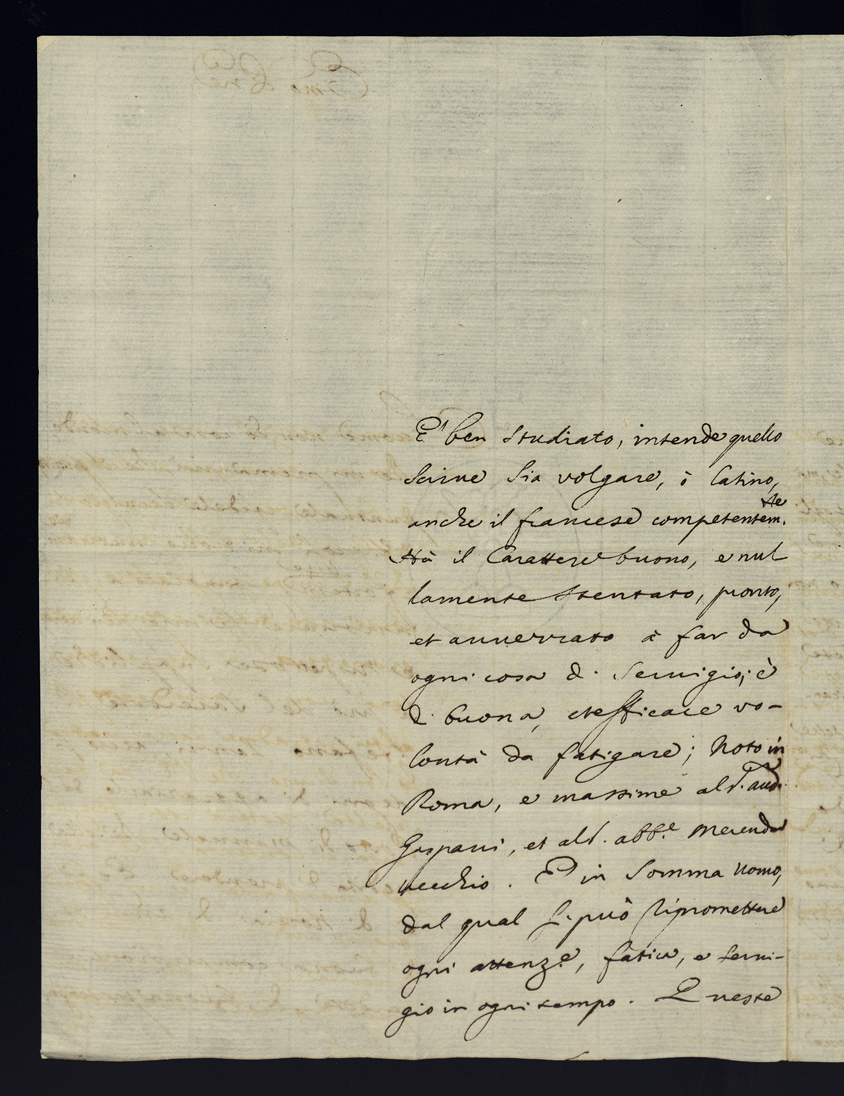 E' ben studiato, intende quello
scrive sia volgare, ò latino,
anche il francese competentem.te
Hà il Carattere buono, e nul
lamente stentato, pronto,
et auuezzato à far da
ogni cosa di seruigio; è
di buona, et efficace vo-
lontà da fatigare; Noto in
Roma, e massime al S. Aud.
Gaspari, et al S. abb.e Merenda
uecchio. E' in somma uomo,
dal qual si può ripromettere
ogni attenz.e, fatica, e serui-
gio in ogni tempo. Queste